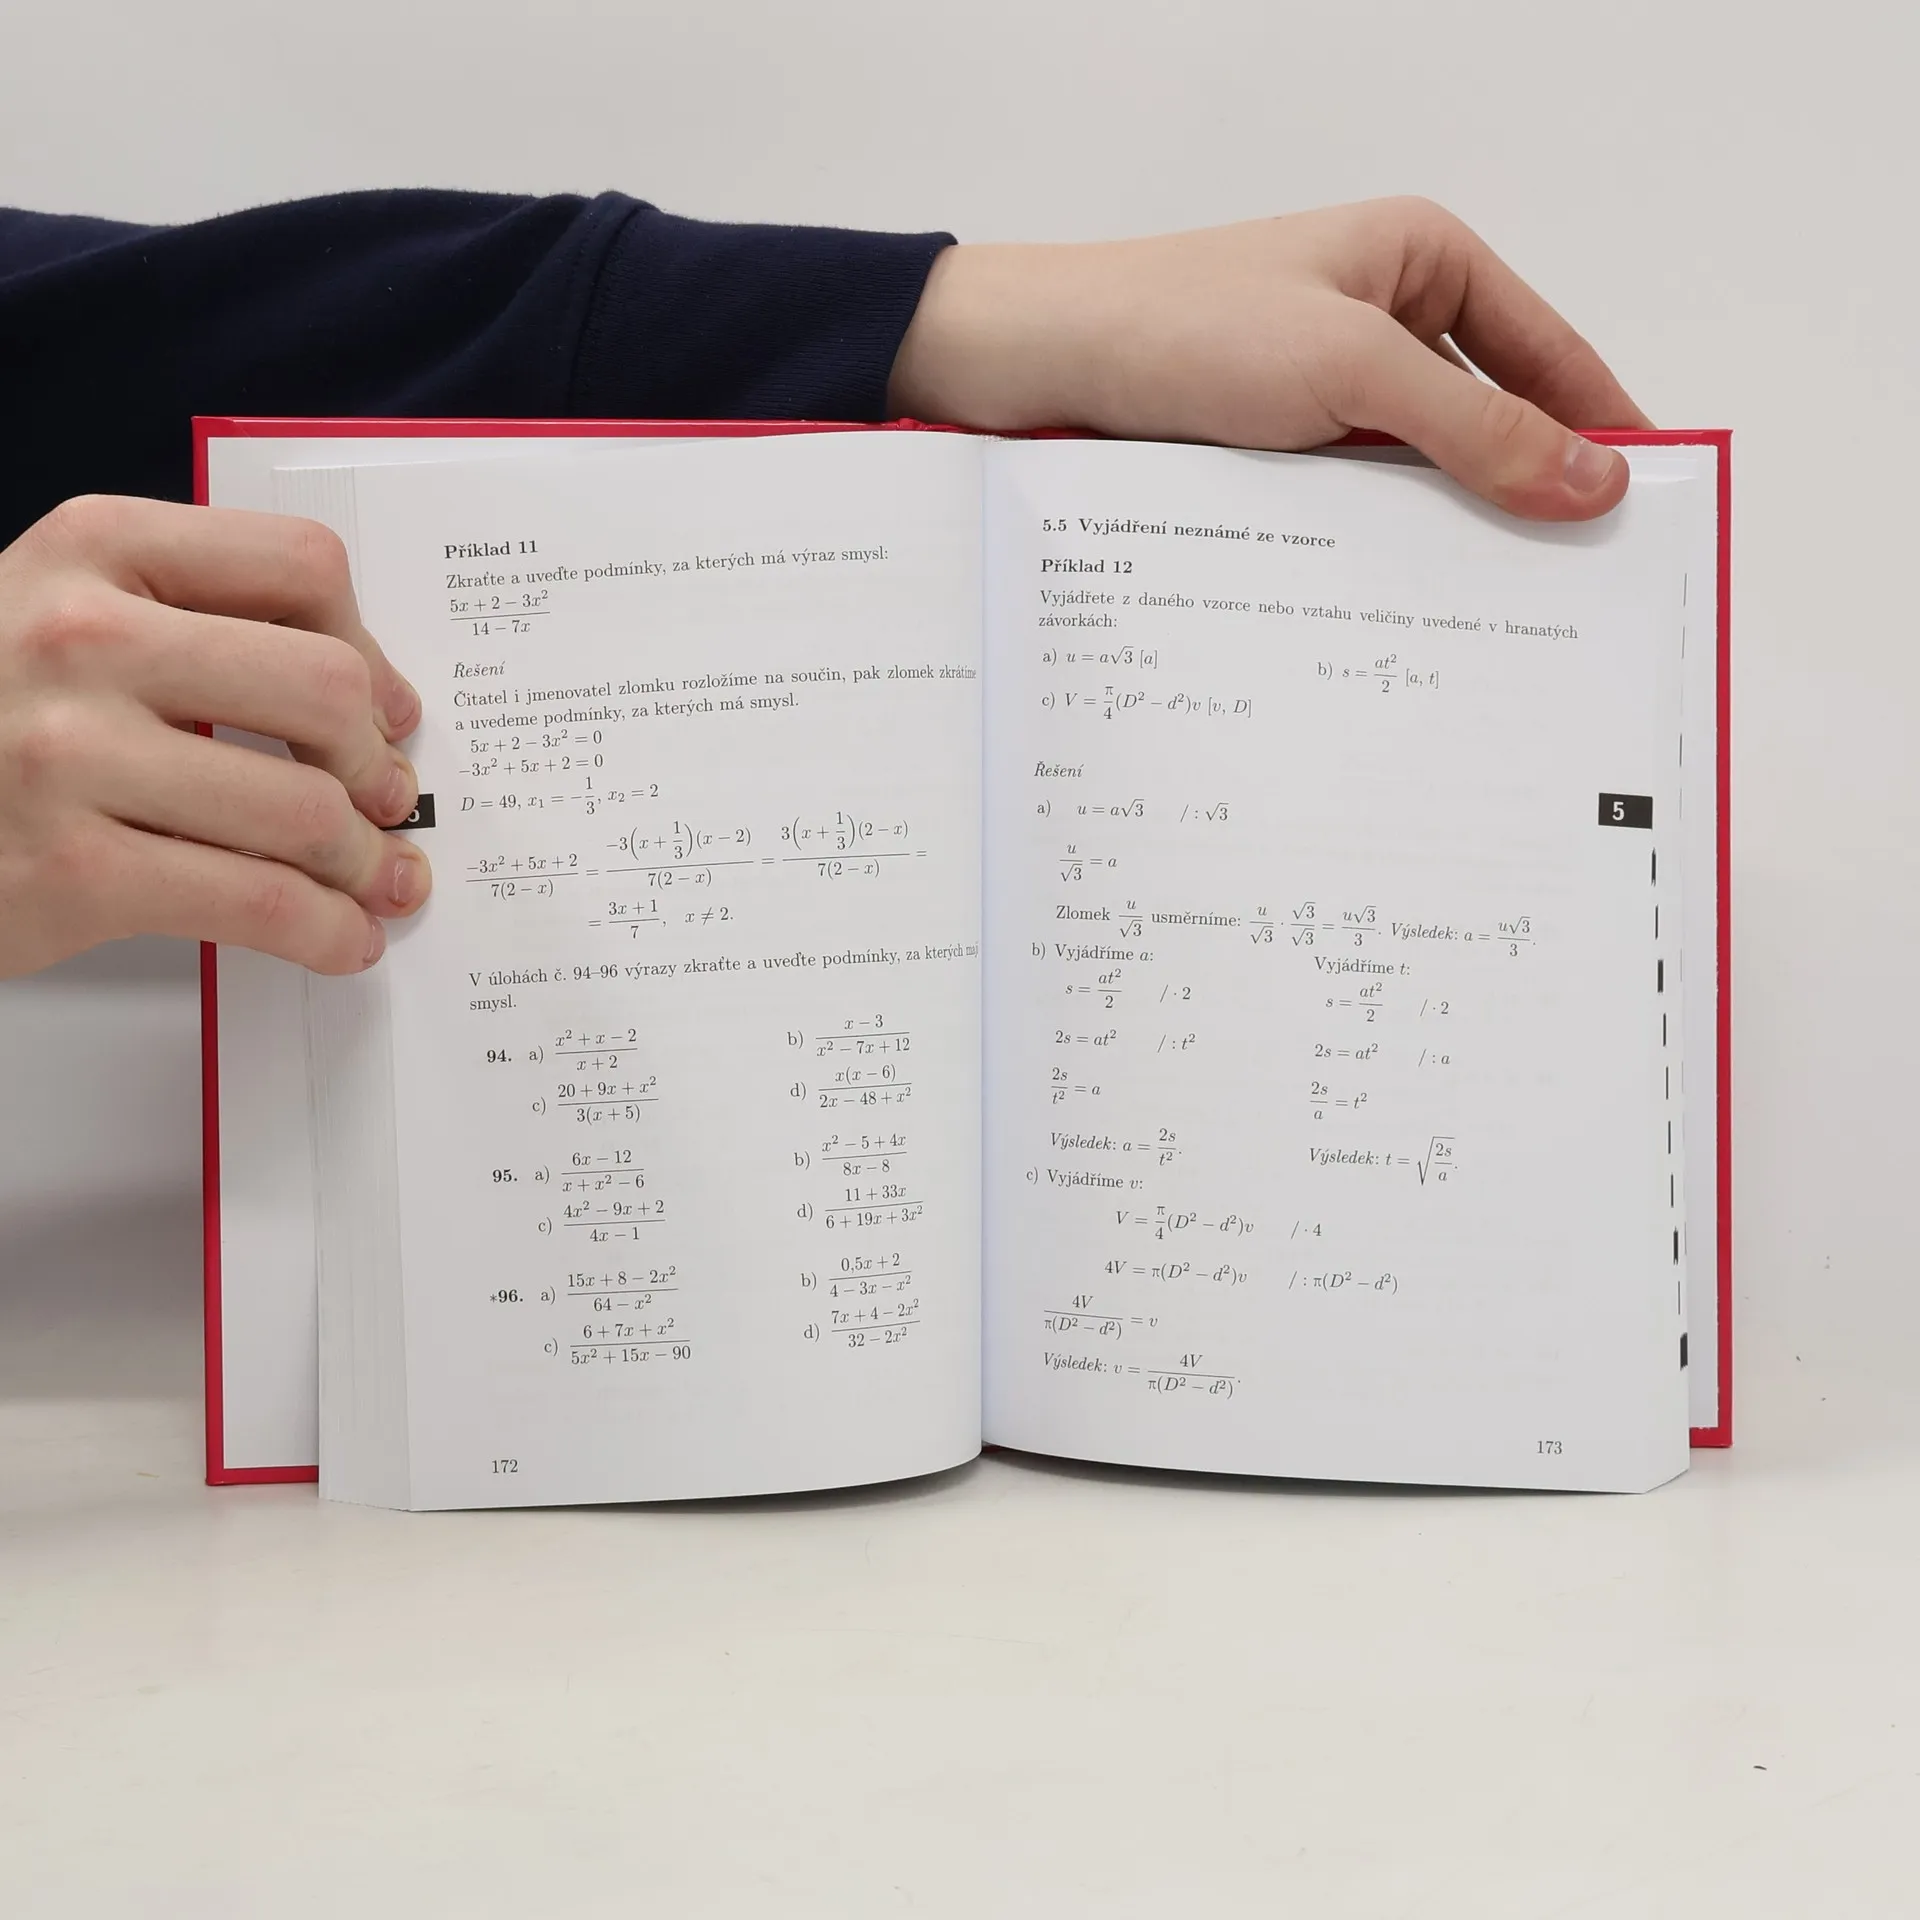 Příklad 11
Zkraťte a uveďte podmínky, za kterých má výraz smysl:
5x + 2 − 3x²
14 − 7x
Řešení
Čitatel i jmenovatel zlomku rozložíme na součin, pak zlomek zkrátíme
a uvedeme podmínky, za kterých má smysl.
5x + 2 − 3x² = 0
−3x² + 5x + 2 = 0
D = 49, x₁ = −1/3, x₂ = 2
(−3x² + 5x + 2)/(7(2 − x)) = (−3(x + 1/3)(x − 2))/(7(2 − x)) = (3(x + 1/3)(2 − x))/(7(2 − x)) =
= (3x + 1)/7, x ≠ 2.
V úlohách č. 94–96 výrazy zkraťte a uveďte podmínky, za kterých mají
smysl.
94. a) (x² + x − 2)/(x + 2) b) (x − 3)/(x² − 7x + 12)
c) (20 + 9x + x²)/(3(x + 5)) d) (x(x − 6))/(2x − 48 + x²)
95. a) (6x − 12)/(x + x² − 6) b) (x² − 5 + 4x)/(8x − 8)
c) (4x² − 9x + 2)/(4x − 1) d) (11 + 33x)/(6 + 19x + 3x²)
*96. a) (15x + 8 − 2x²)/(64 − x²) b) (0,5x + 2)/(4 − 3x − x²)
c) (6 + 7x + x²)/(5x² + 15x − 90) d) (7x + 4 − 2x²)/(32 − 2x²)
172
5
5.5 Vyjádření neznámé ze vzorce
Příklad 12
Vyjádřete z daného vzorce nebo vztahu veličiny uvedené v hranatých
závorkách:
a) u = a√3 [a] b) s = at²/2 [a, t]
c) V = π/4(D² − d²)v [v, D]
Řešení
a) u = a√3 / : √3
u/√3 = a
Zlomek u/√3 usměrníme: u/√3 · √3/√3 = u√3/3. Výsledek: a = u√3/3.
b) Vyjádříme a: Vyjádříme t:
s = at²/2 / · 2 s = at²/2 / · 2
2s = at² / : t² 2s = at² / : a
2s/t² = a 2s/a = t²
Výsledek: a = 2s/t². Výsledek: t = √(2s/a).
c) Vyjádříme v:
V = π/4(D² − d²)v / · 4
4V = π(D² − d²)v / : π(D² − d²)
4V/(π(D² − d²)) = v
Výsledek: v = 4V/(π(D² − d²)).
173
5